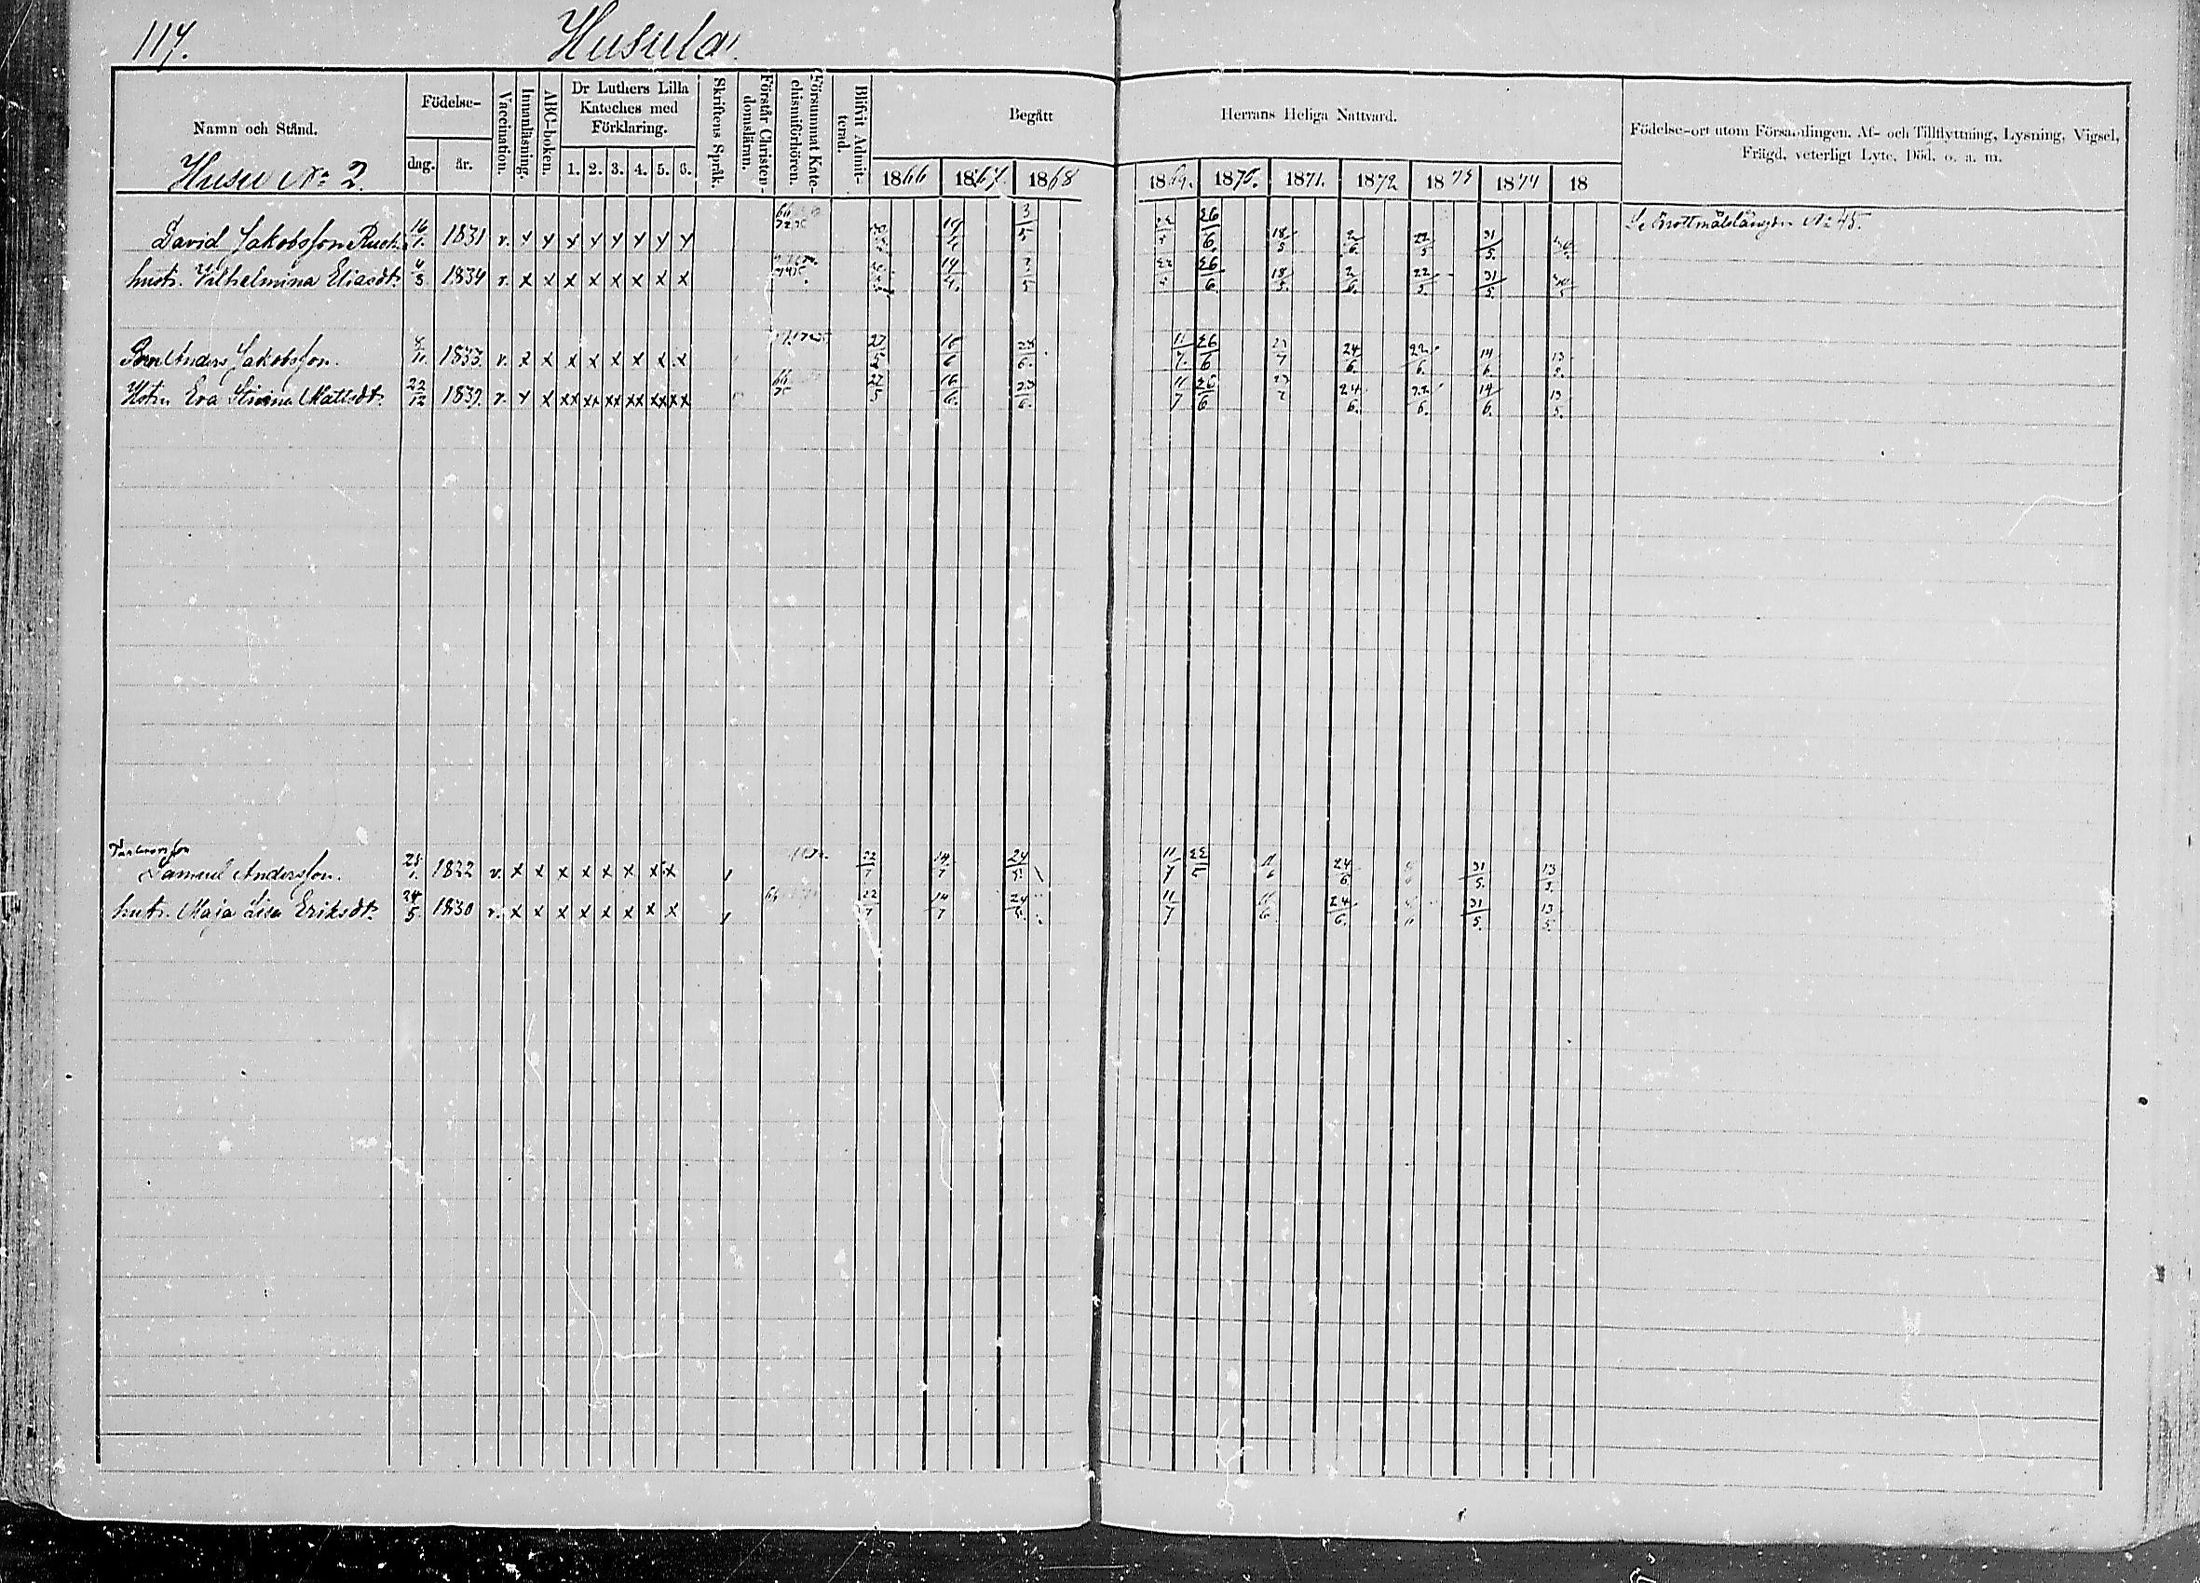 117. Husula.
Namn och Stånd.
Födelse-
dag. år.
Vaccination.
Innanläsning.
ABC-boken.
Dr Luthers Lilla Kateches med Förklaring.
1. 2. 3. 4. 5. 6.
Skriftens Språk.
Förstår Christendomsläran.
Försummat Katechismiförhören.
Blifvit Admitterad.
Begått Herrans Heliga Nattvard.
1866 1867. 1868 1869. 1870. 1871. 1872 1873 1874 18
Födelse-ort utom Församlingen, Af- och Tillflyttning, Lysning, Vigsel,
Frägd, veterligt Lyte, Död, o. a. m.
Husu No 2.
David Jakobsson 16/1. 1831 v. x x x x x x x x 3/5 26/6. 18/5 2/6. 22/5 31/5. Se Brottmålslängden No 45.
hustr. Vilhelmina Eliasdr. 4/3 1834 v. x x x x x x x x 14/4. 26/6. 18/5. 2/6. 22/5. 31/5.
Anders Jakobsson. 8/11. 1833. v. x x x x x x x x 27/5 16/6 11/7. 26/6 23/7 24/6. 22/6. 14/6.
Hstr. Eva Stina Mattsdr. 22/12 1839. v. x x xx xx xx xx xx xx 16/6. 11/7 26/6 24/6. 22/6. 14/6. 13/5.
Samuel Andersson. 1822 v. x x x x x x x x 22/7 14/7 24/5. 11/7 22/5 24/6 31/5. 13/5.
hustr. Maja Lisa Eriksdr. 24/5 1830 v. x x x x x x x x 22/7 14/7 24/5. 11/7 24/6. 31/5. 13/5.